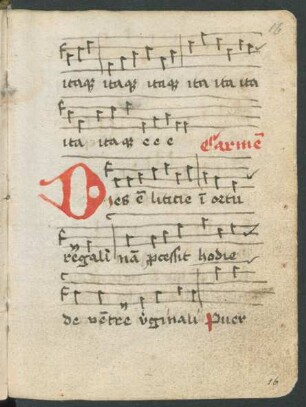 16
itaqꝫ itaqꝫ itaqꝫ ita ita ita
ita itaqꝫ e e e Carmē
Dies ē liticie ī ortu
regali nā ꝓcessit hodie
de vētre v̾ginali Puer
16